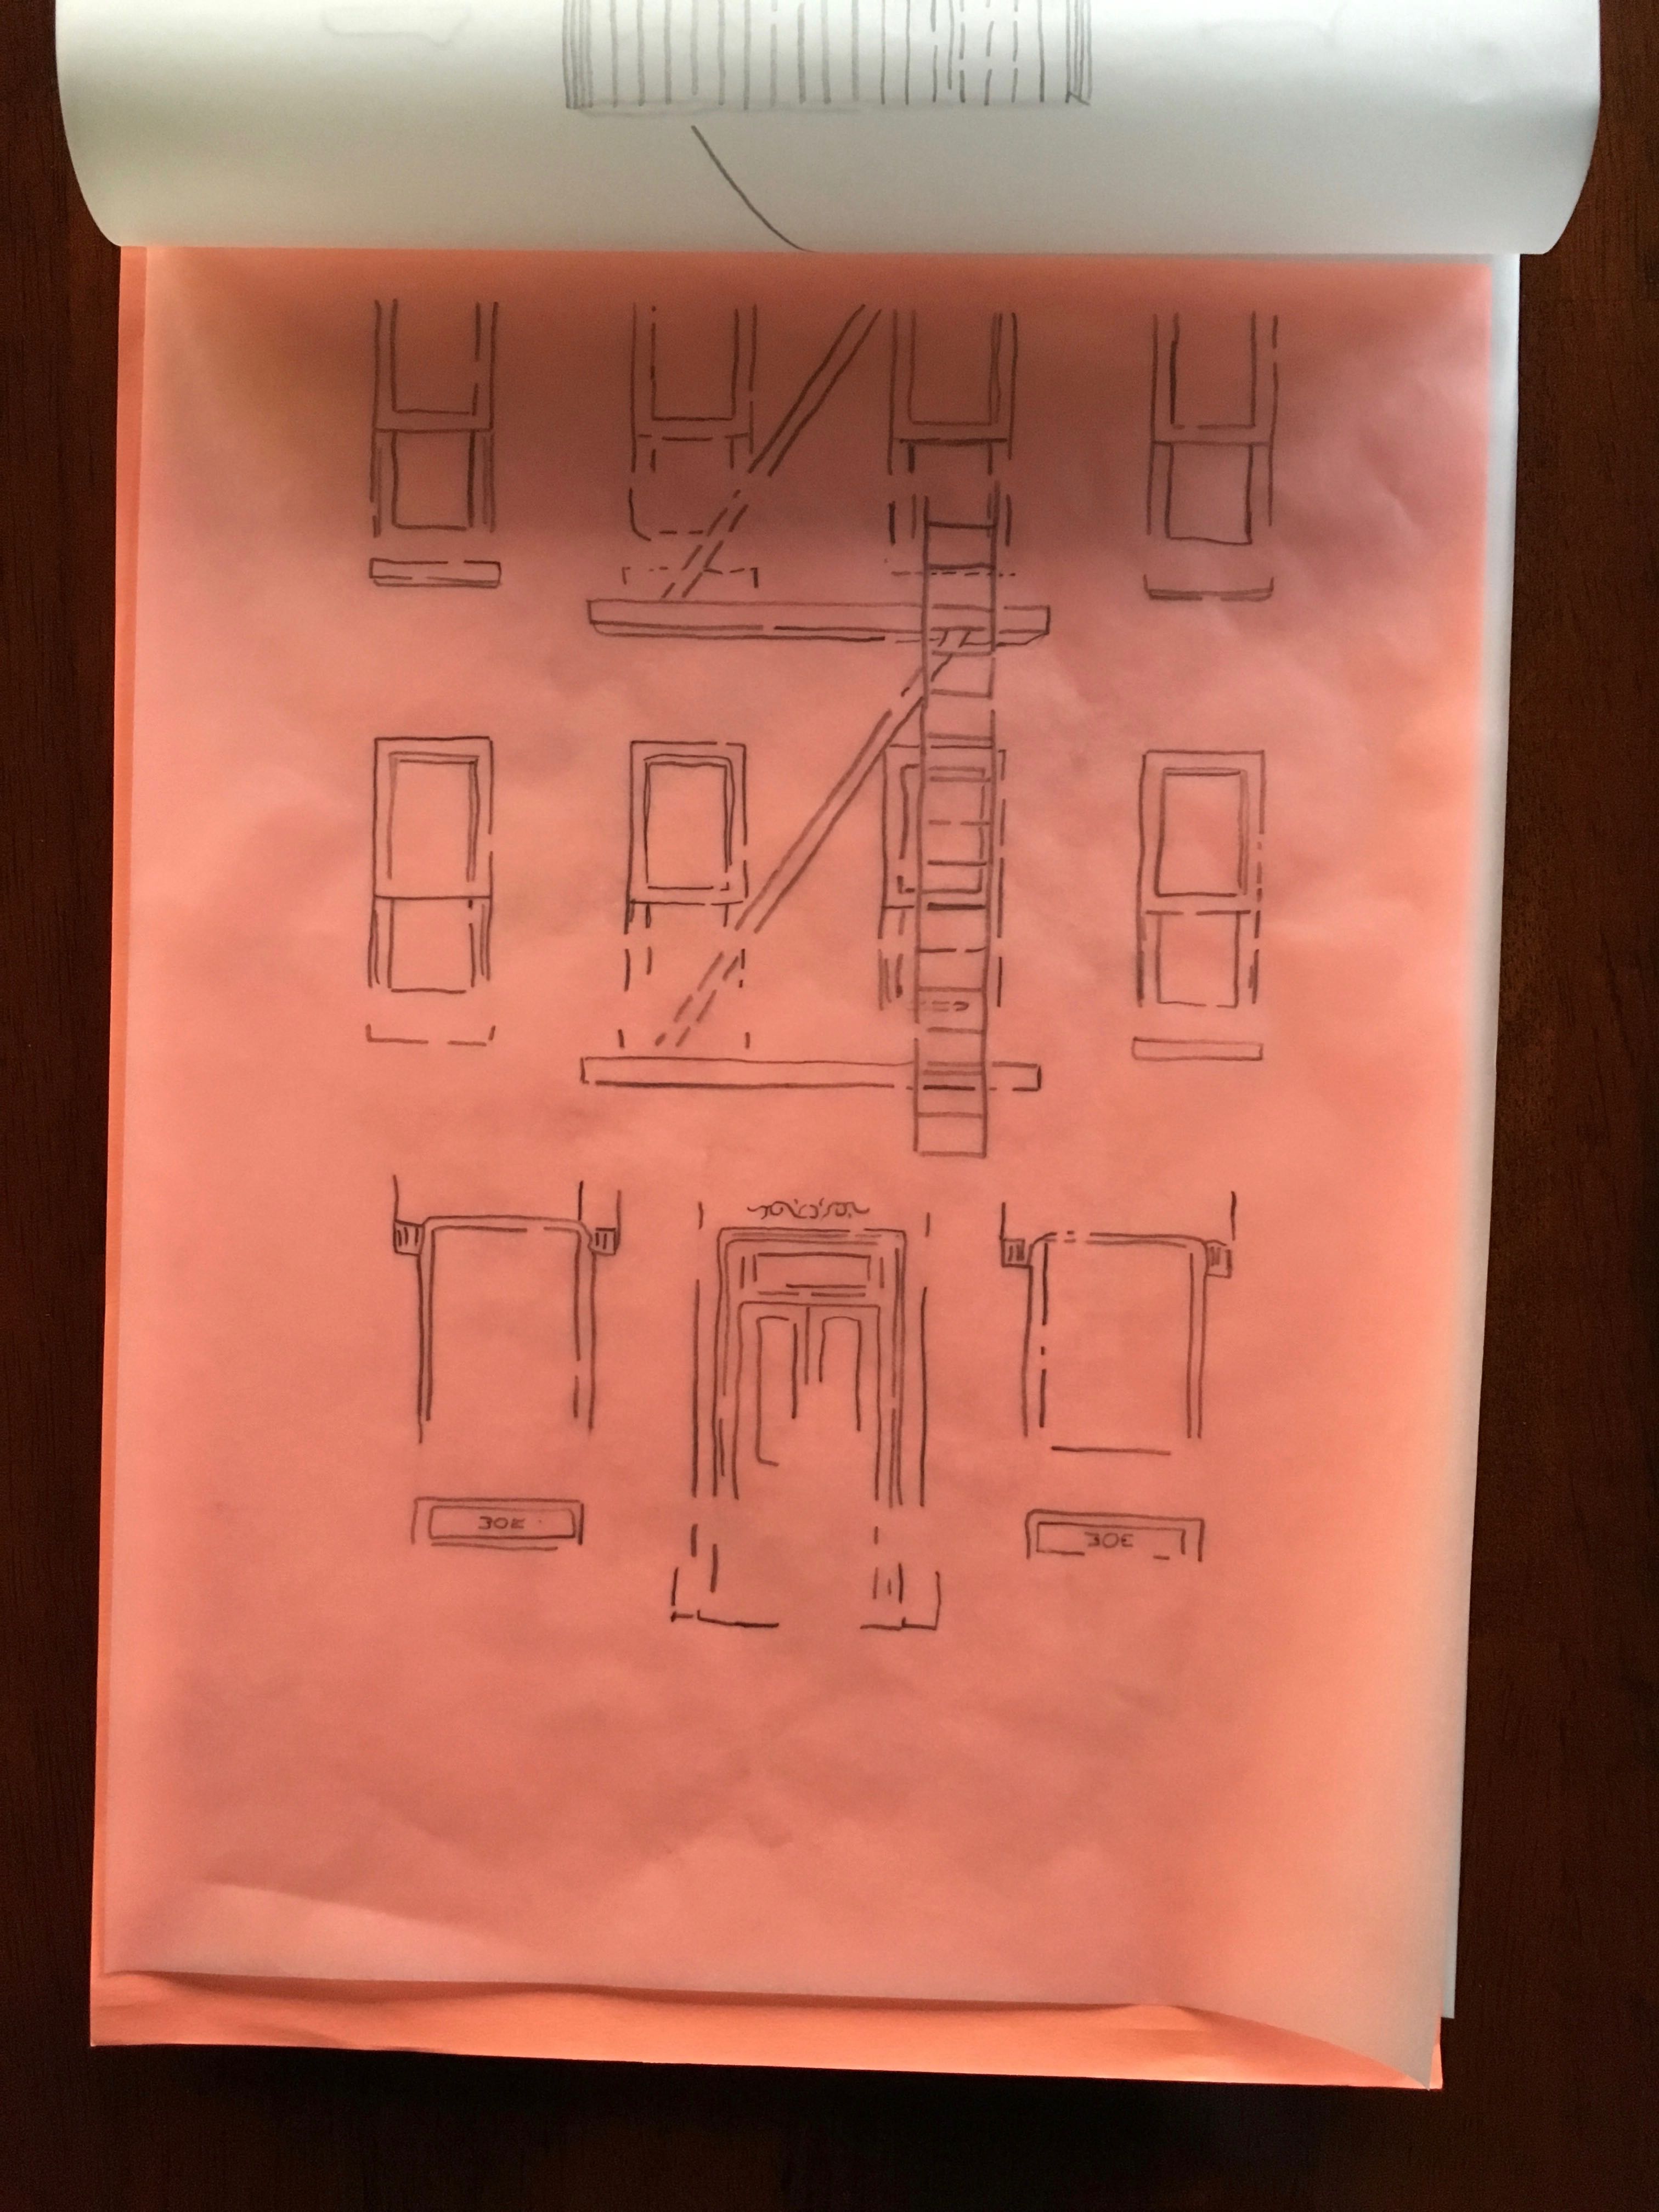 30E
30E